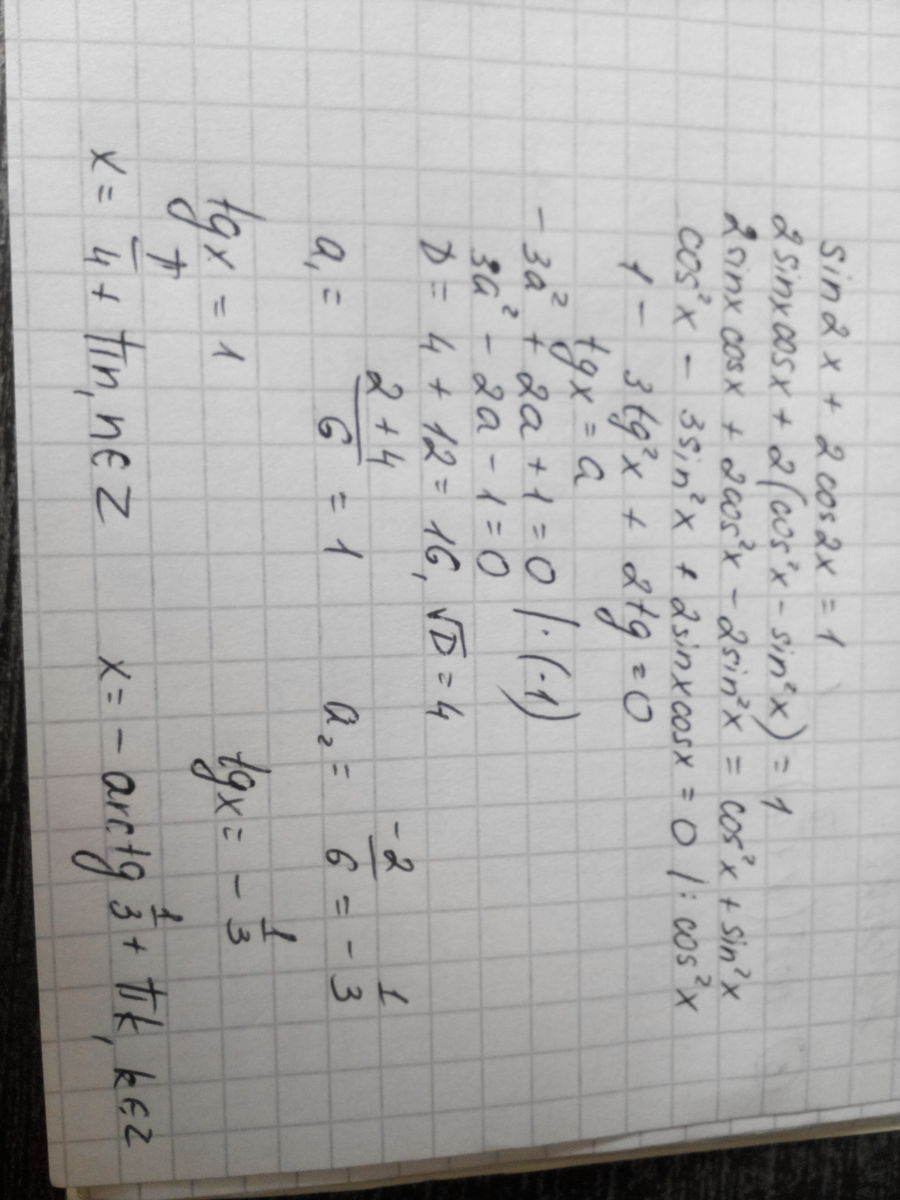 sin2x + 2cos2x = 1
2sinxcosx + 2(cos²x - sin²x) = 1
2sinxcosx + 2cos²x - 2sin²x = cos²x + sin²x
cos²x - 3sin²x + 2sinxcosx = 0 |: cos²x
1 - 3tg²x + 2tg = 0
tgx = a
-3a² + 2a + 1 = 0 |·(-1)
3a² - 2a - 1 = 0
D = 4 + 12 = 16, √D = 4
a₁ = (2+4)/6 = 1 a₂ = -2/6 = -1/3
tgx = 1 tgx = -1/3
x = π/4 + πn, n∈Z x = -arctg 1/3 + πk, k∈Z